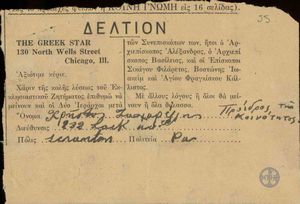 ἡ ΚΟΙΝΗ ΓΝΩΜΗ εἰς 16 σελίδας).
35
ΔΕΛΤΙΟΝ
THE GREEK STAR
130 North Wells Street
Chicago, Ill.
Ἀξιότιμε κύριε,
Χάριν τῆς καλῆς λύσεως τοῦ Ἐκ-
κλησιαστικοῦ Ζητήματος ἐπιθυμῶ νὰ
μείνουν καὶ οἱ Δύο Ἱεράρχαι μετὰ
τῶν Συνεπισκόπων των, ἤτοι ὁ Ἀρχι-
επίσκοπος Ἀλέξανδρος, ὁ Ἀρχιεπί-
σκοπος Βασίλειος, καὶ οἱ Ἐπίσκοποι
Σικάγου Φιλάρετος, Βοστώνης Ἰωα-
κεὶμ καὶ Ἁγίου Φραγκίσκου Κάλ-
λιστος.
Μὲ ἄλλους λόγους ἢ ὅλοι θὰ μεί-
νουν ἢ ὅλα θὰ φύγωσι.
Ὄνομα Χρῆστος
Πρόεδρος τῆς
Κοινότητος
Διεύθυνσις 272
Πόλις Scranton Πολιτεία Pa